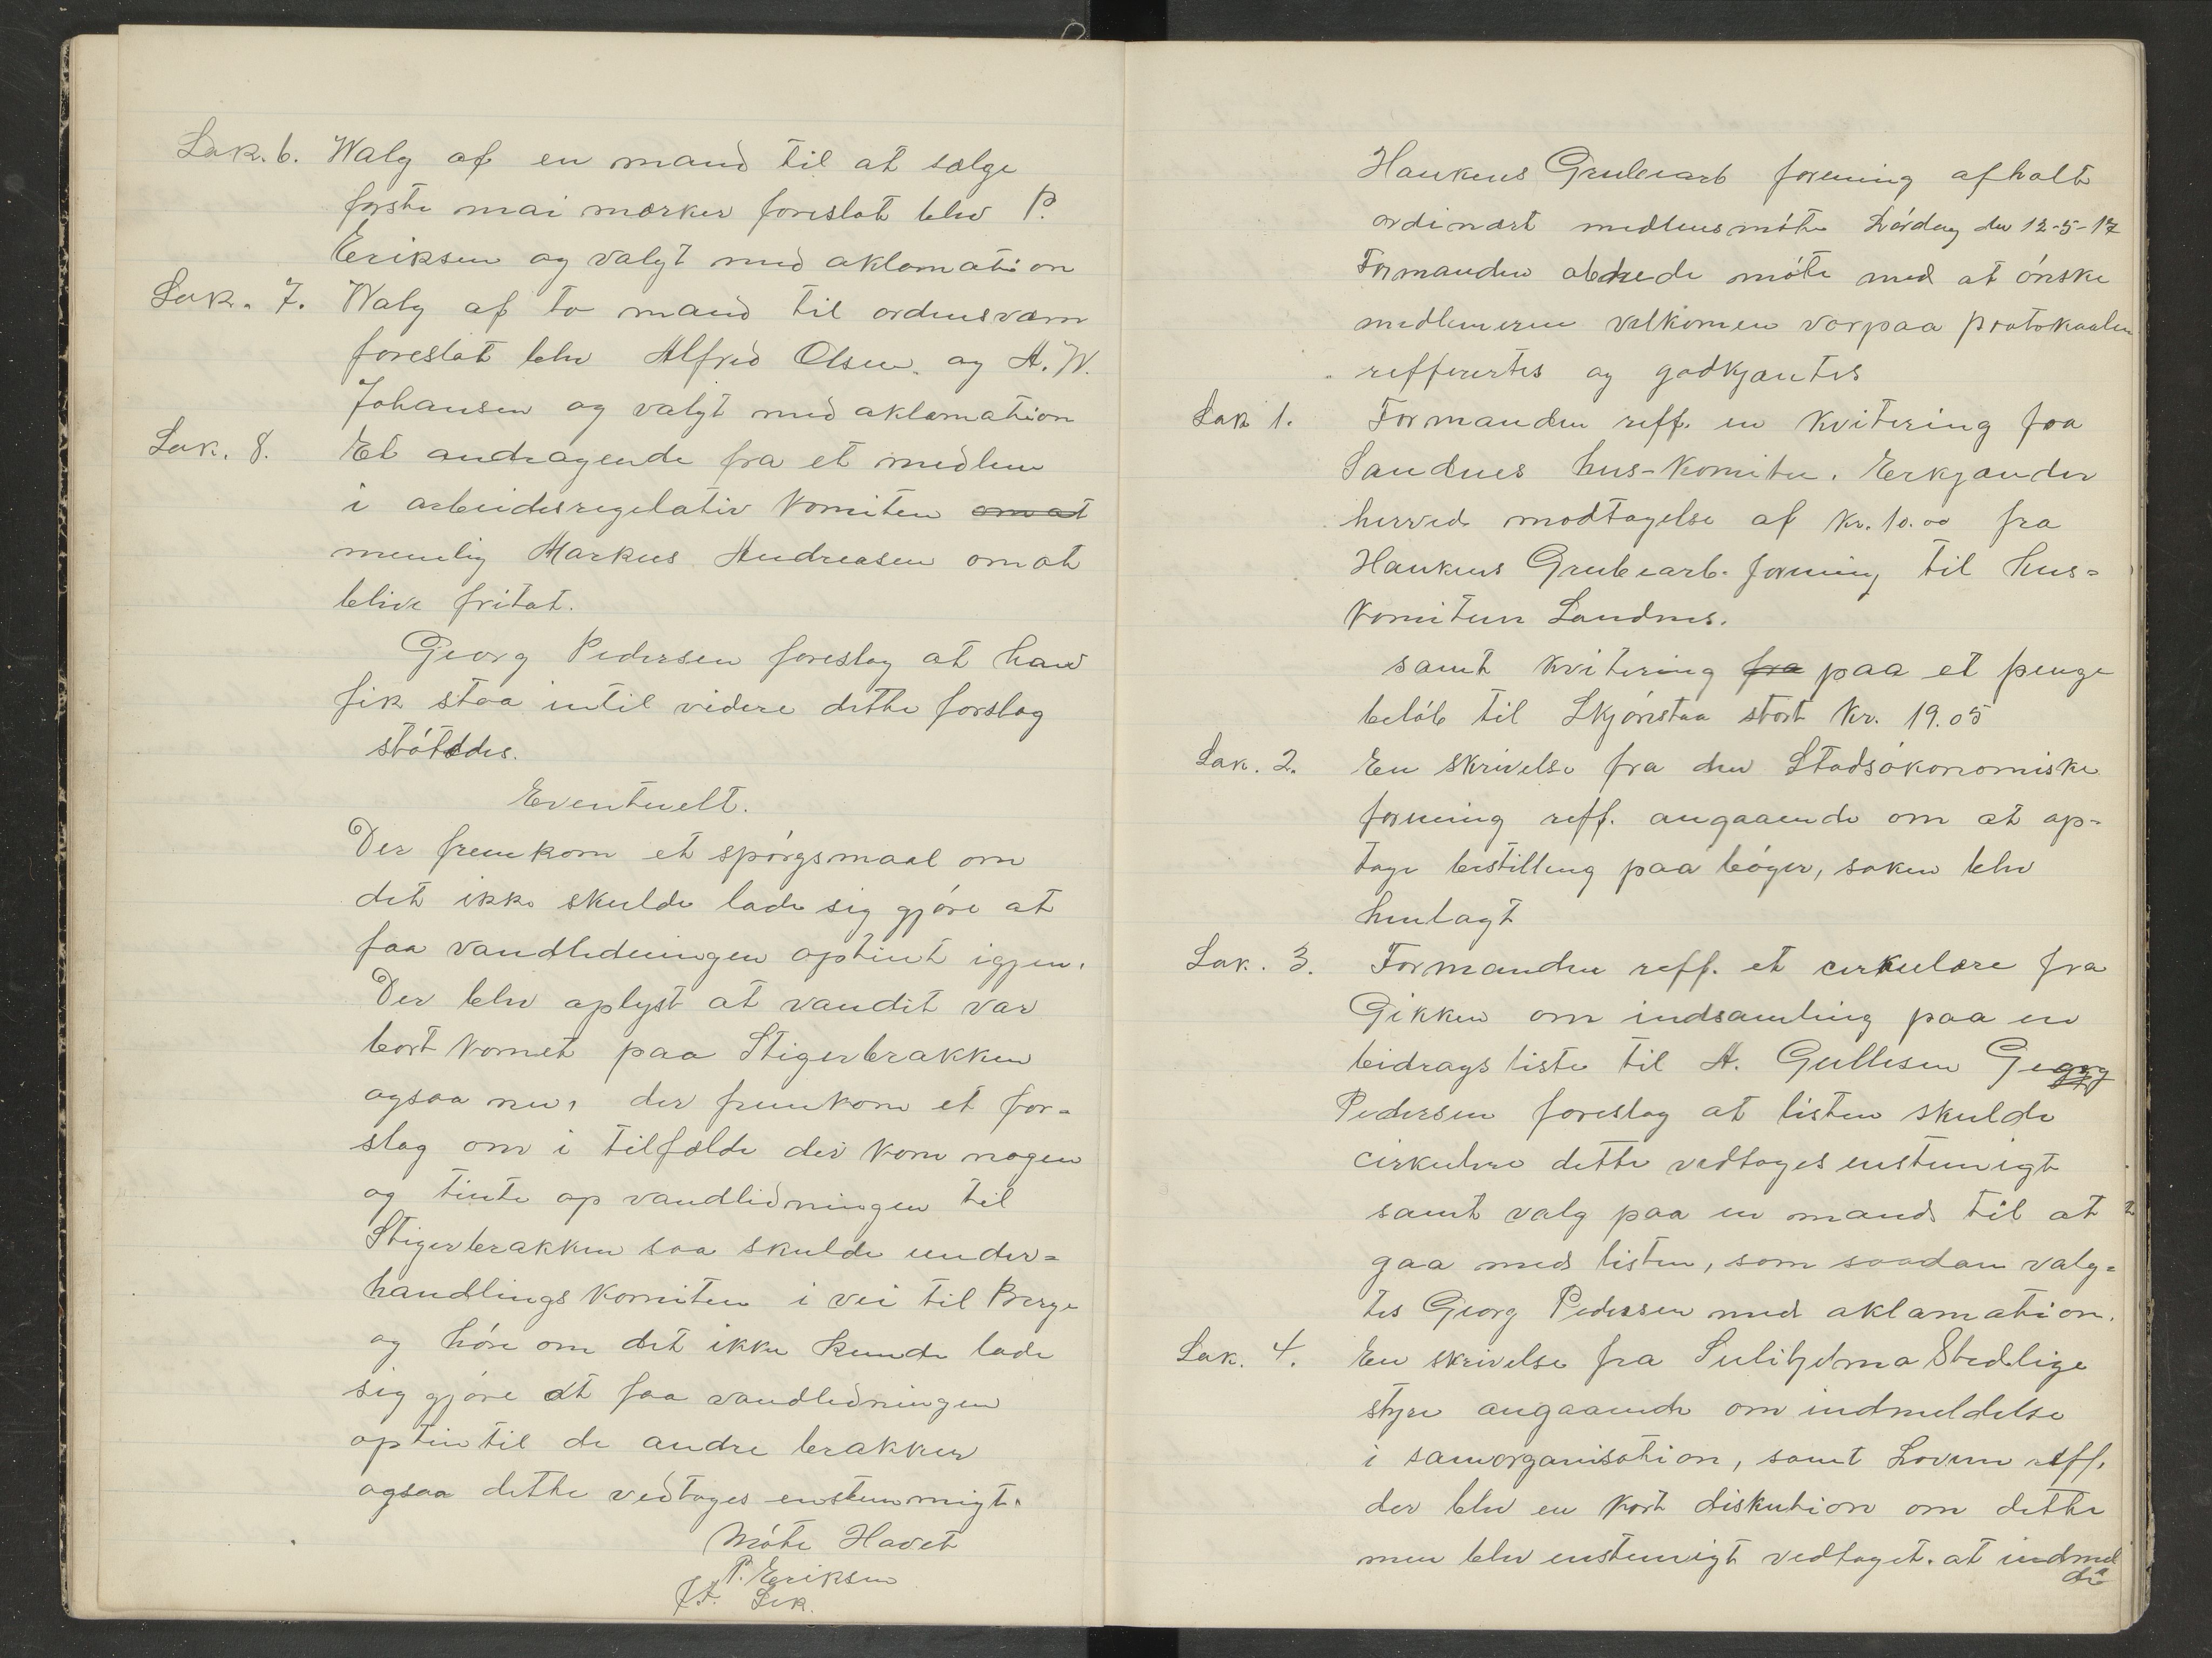 Sak. 6. Walg af en mand til at sælge
første mai mærker foreslat blev P.
Eriksen og valgt med aklamation
Sak. 7. Walg af to mand til ordensværn
foreslat blev Alfred Olsen. og A. W.
Johansen og valgt med aklamation
Sak. 8. Et andragende fra et medlem
i arbeidesregelativ komiten om at
menlig Markus Andreasen om at
blive fritat.
Georg Pedersen foreslog at han
fik staa intil videre dette forslag
støtddes.
Eventuelt.
Der fremkom et spørgsmaal om
det ikke skulde lade sig gjøre at
faa vandledningen optint igjen.
Der blev oplyst at vandet var
bort komet paa Stigerbrakken
ogsaa nu, der fremkom et for-
slag om i tilfælde der kom nogen
og tinte op vandledningen til
Stigerbrakken saa skulde under=
handlings komiten i vei til Berge
og høre om det ikke kunde lade
sig gjøre at faa vandledningen
optin til de andre brakker
ogsaa dette vedtoges enstemmigt.
Møte Hævet
P. Eriksen
ft. Sek.
Haukens Grubearb forening afholt
ordinært medlemsmøte Lørdag den 12-5-17
Formanden abnede møte med at ønske
medlemeren velkomen vorpaa protokaalen
refferertes og godkjøntes
Sak 1. Formanden reff. en kvitering fra
Sandnes hus-komite. Erkjander
herved modtagelse af kr. 10.00 fra
Haukens Grubearb. forening til hus=
komiteen Sandnes.
samt kvitering fra paa et penge
beløb til Skjønstaa stort kr. 19.05
Sak. 2. En skrivelse fra den Stadsøkonomiske
forening reff. angaaende om at op-
tage bestilling paa bøger, saken blev
henlagt
Sak. 3. Formanden reff. et cirkulære fra
Gikken om indsamling paa en
bidrags liste til A. Gullesen Georg
Pedersen foreslog at listen skulde
cirkulere dette vedtoges enstemigt
samt valg paa en mand til at
gaa med listen, som saadan valg=
tes Georg Pedersen med aklamation.
Sak. 4. En skrivelse fra Sulitjelma Stedlige
styre angaaende om indmeldelse
i samorganisation, samt Loven reff.
der blev en kort diskution om dette
men blev enstemigt vedtaget. at indmel
de